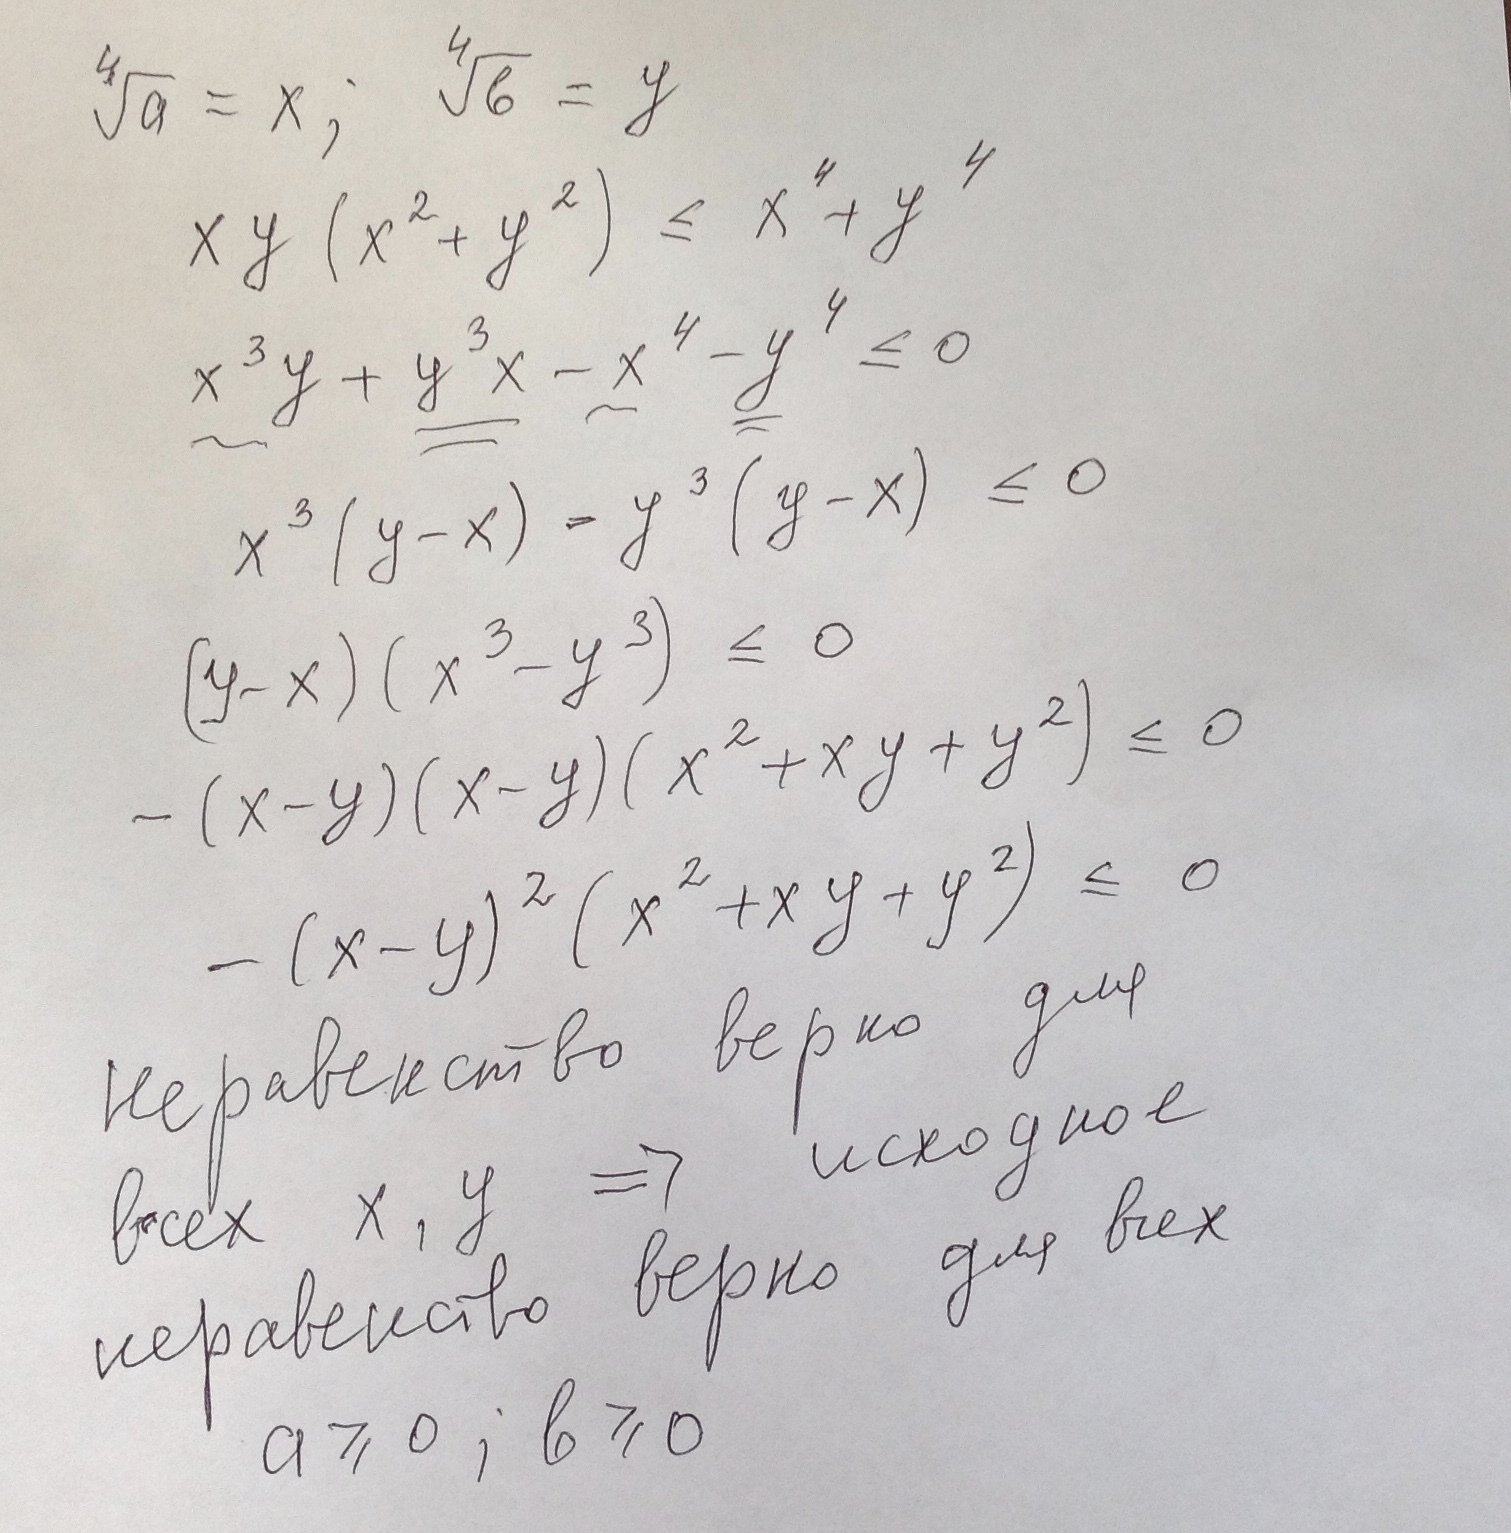 ∜a = x; ∜b = y
xy(x² + y²) ≤ x⁴ + y⁴
x³y + y³x - x⁴ - y⁴ ≤ 0
x³(y-x) - y³(y-x) ≤ 0
(y-x)(x³-y³) ≤ 0
-(x-y)(x-y)(x²+xy+y²) ≤ 0
-(x-y)²(x²+xy+y²) ≤ 0
Неравенство верно для
всех x, y => исходное
неравенство верно для всех
a ⩾ 0; b ⩾ 0